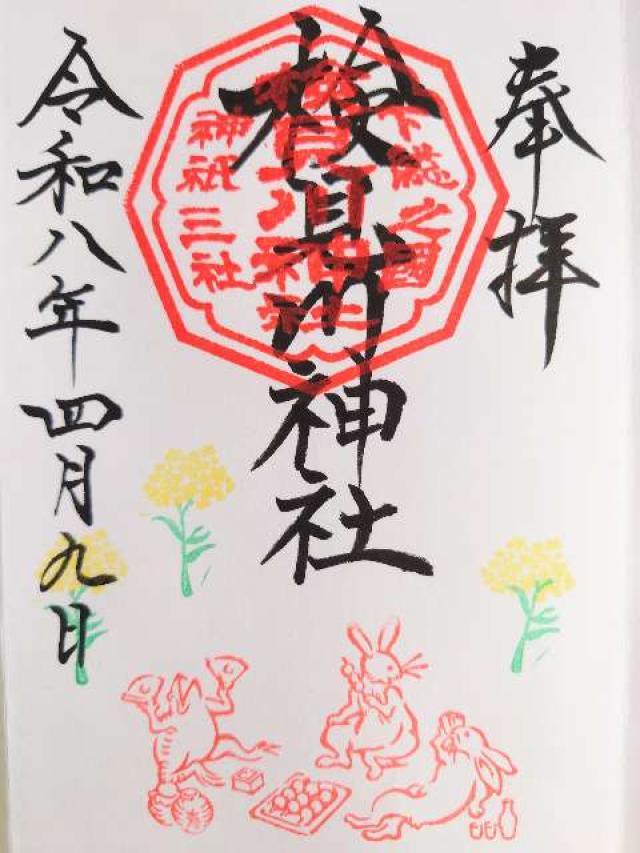 奉拝
下総之國
検見川神社
神祇三社
検見川神社
令和八年四月九日